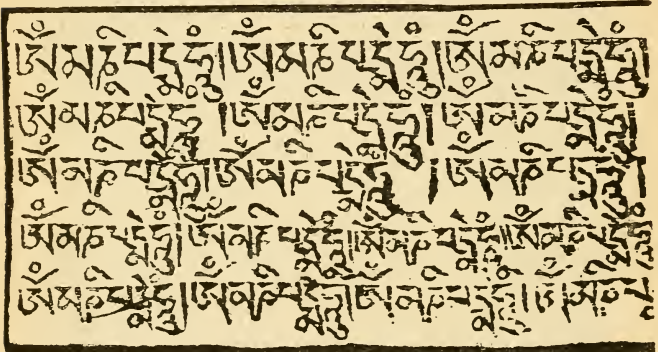 ཨོཾམཎིཔདྨེཧཱུྃ།ཨོཾམཎིཔདྨེཧཱུྃ།ཨོཾམཎིཔདྨེཧཱུྃ།
ཨོཾམཎིཔདྨེཧཱུྃ།ཨོཾམཎིཔདྨེཧཱུྃ།ཨོཾམཎིཔདྨེཧཱུྃ།
ཨོཾམཎིཔདྨེཧཱུྃ།ཨོཾམཎིཔདྨེཧཱུྃ།ཨོཾམཎིཔདྨེཧཱུྃ།
ཨོཾམཎིཔདྨེཧཱུྃ།ཨོཾམཎིཔདྨེཧཱུྃ།།ཨོཾམཎིཔདྨེཧཱུྃ།།ཨོཾམཎིཔདྨེཧཱུྃ
ཨོཾམཎིཔདྨེཧཱུྃ།ཨོཾམཎིཔདྨེཧཱུྃ།ཨོཾམཎིཔདྨེཧཱུྃ།ཨོཾམཎིཔ